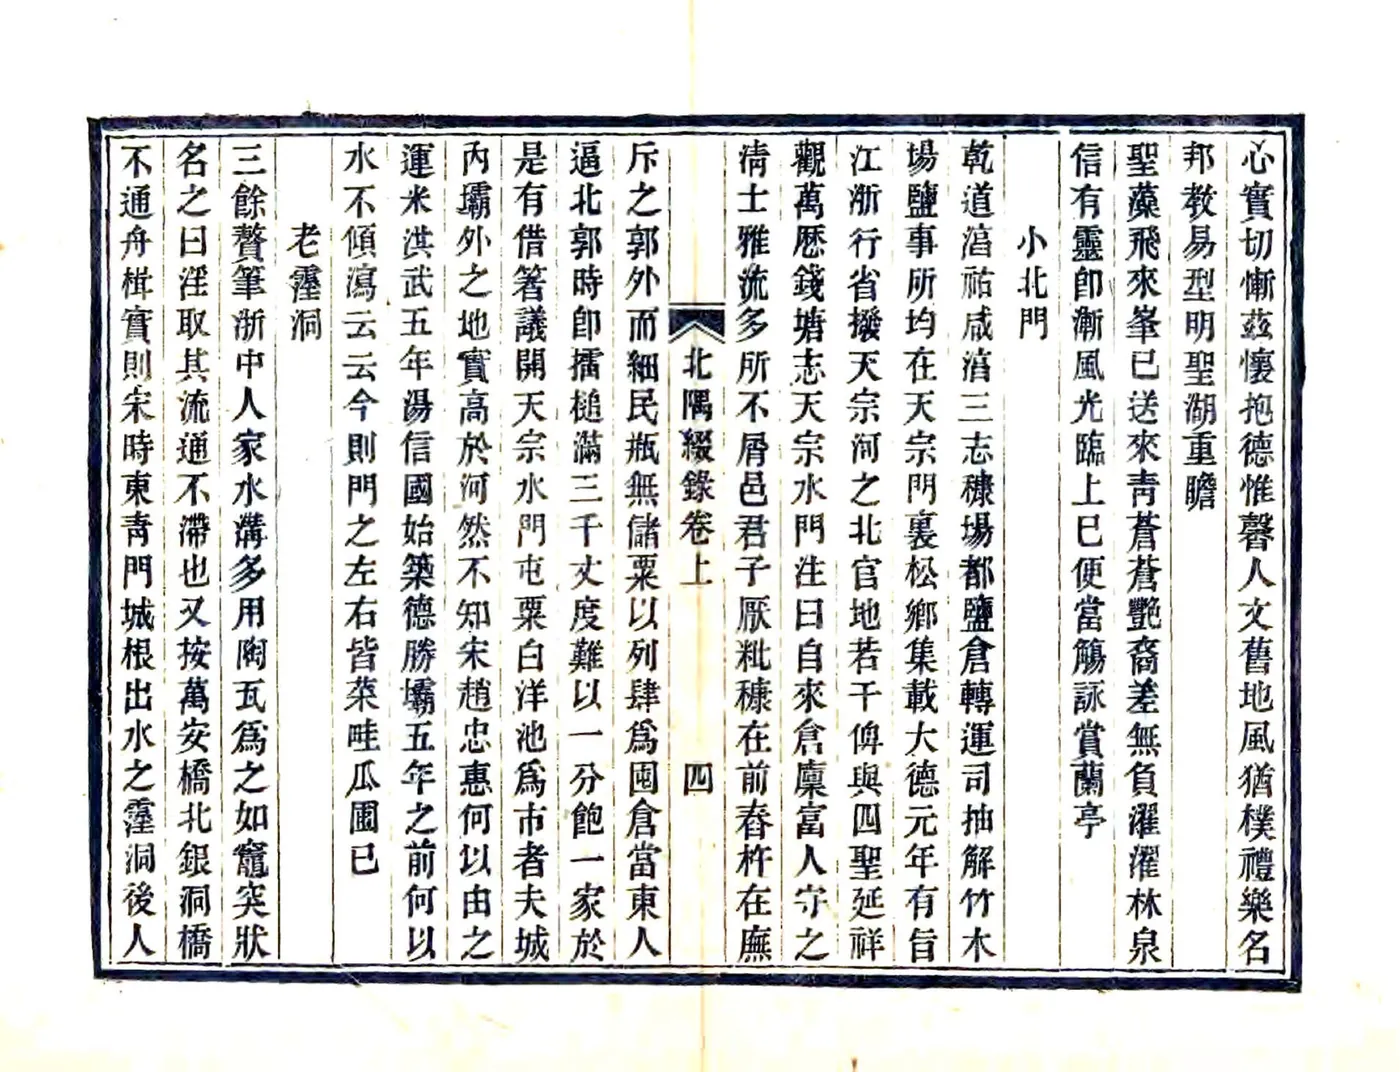 心實切慚茲懷抱德惟馨人文舊地風猶樸禮樂名
邦教易型明聖湖重瞻
聖藻飛來峯已送來靑蒼蒼艷裔差無負濯濯林泉
信有靈卽漸風光臨上巳便當觴詠賞蘭亭
小北門
乾道湻祐咸湻三志穅場都鹽倉轉運司抽解竹木
場鹽事所均在天宗門裏松鄉集載大德元年有旨
江浙行省撥天宗河之北官地若干俾與四聖延祥
觀萬厯錢塘志天宗水門注曰自來倉廩富人守之
淸士雅流多所不屑邑君子厭粃穅在前舂杵在廡
北隅綴錄卷上
四
斥之郭外而細民瓶無儲粟以列肆爲囤倉當東人
逼北郭時卽擂槌滿三千丈度難以一分飽一家於
是有借箸議開天宗水門屯粟白洋池爲市者夫城
內壩外之地實高於河然不知宋趙忠惠何以由之
運米洪武五年湯信國始築德勝壩五年之前何以
水不傾瀉云云今則門之左右皆菜畦瓜圃已
老洞
三餘贅筆浙中人家水溝多用陶瓦爲之如竈突狀
名之曰淫取其流通不滯也又按萬安橋北銀洞橋
不通舟楫實則宋時東靑門城根出水之洞後人